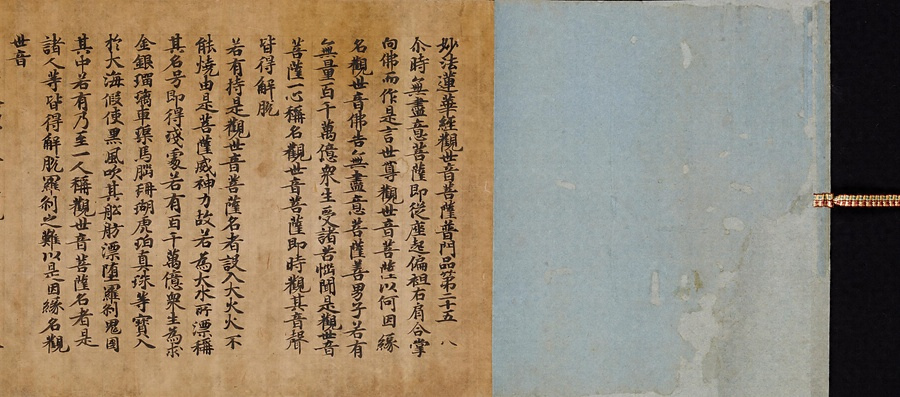 妙法蓮華經觀世音菩薩普門品第二十五 八
尒時無盡意菩薩即從座起偏袒右肩合掌
向佛而作是言世尊觀世音菩薩以何因緣
名觀世音佛告無盡意菩薩善男子若有
無量百千萬億衆生受諸苦惱聞是觀世音
菩薩一心稱名觀世音菩薩即時觀其音聲
皆得解脫
若有持是觀世音菩薩名者設入大火火不
能燒由是菩薩威神力故若為大水所漂稱
其名号即得淺處若有百千萬億衆生為求
金銀瑠璃車磲馬腦珊瑚虎珀真珠等寶入
於大海假使黑風吹其舩舫漂墮羅刹鬼國
其中若有乃至一人稱觀世音菩薩名者是
諸人等皆得解脫羅刹之難以是因緣名觀
世音